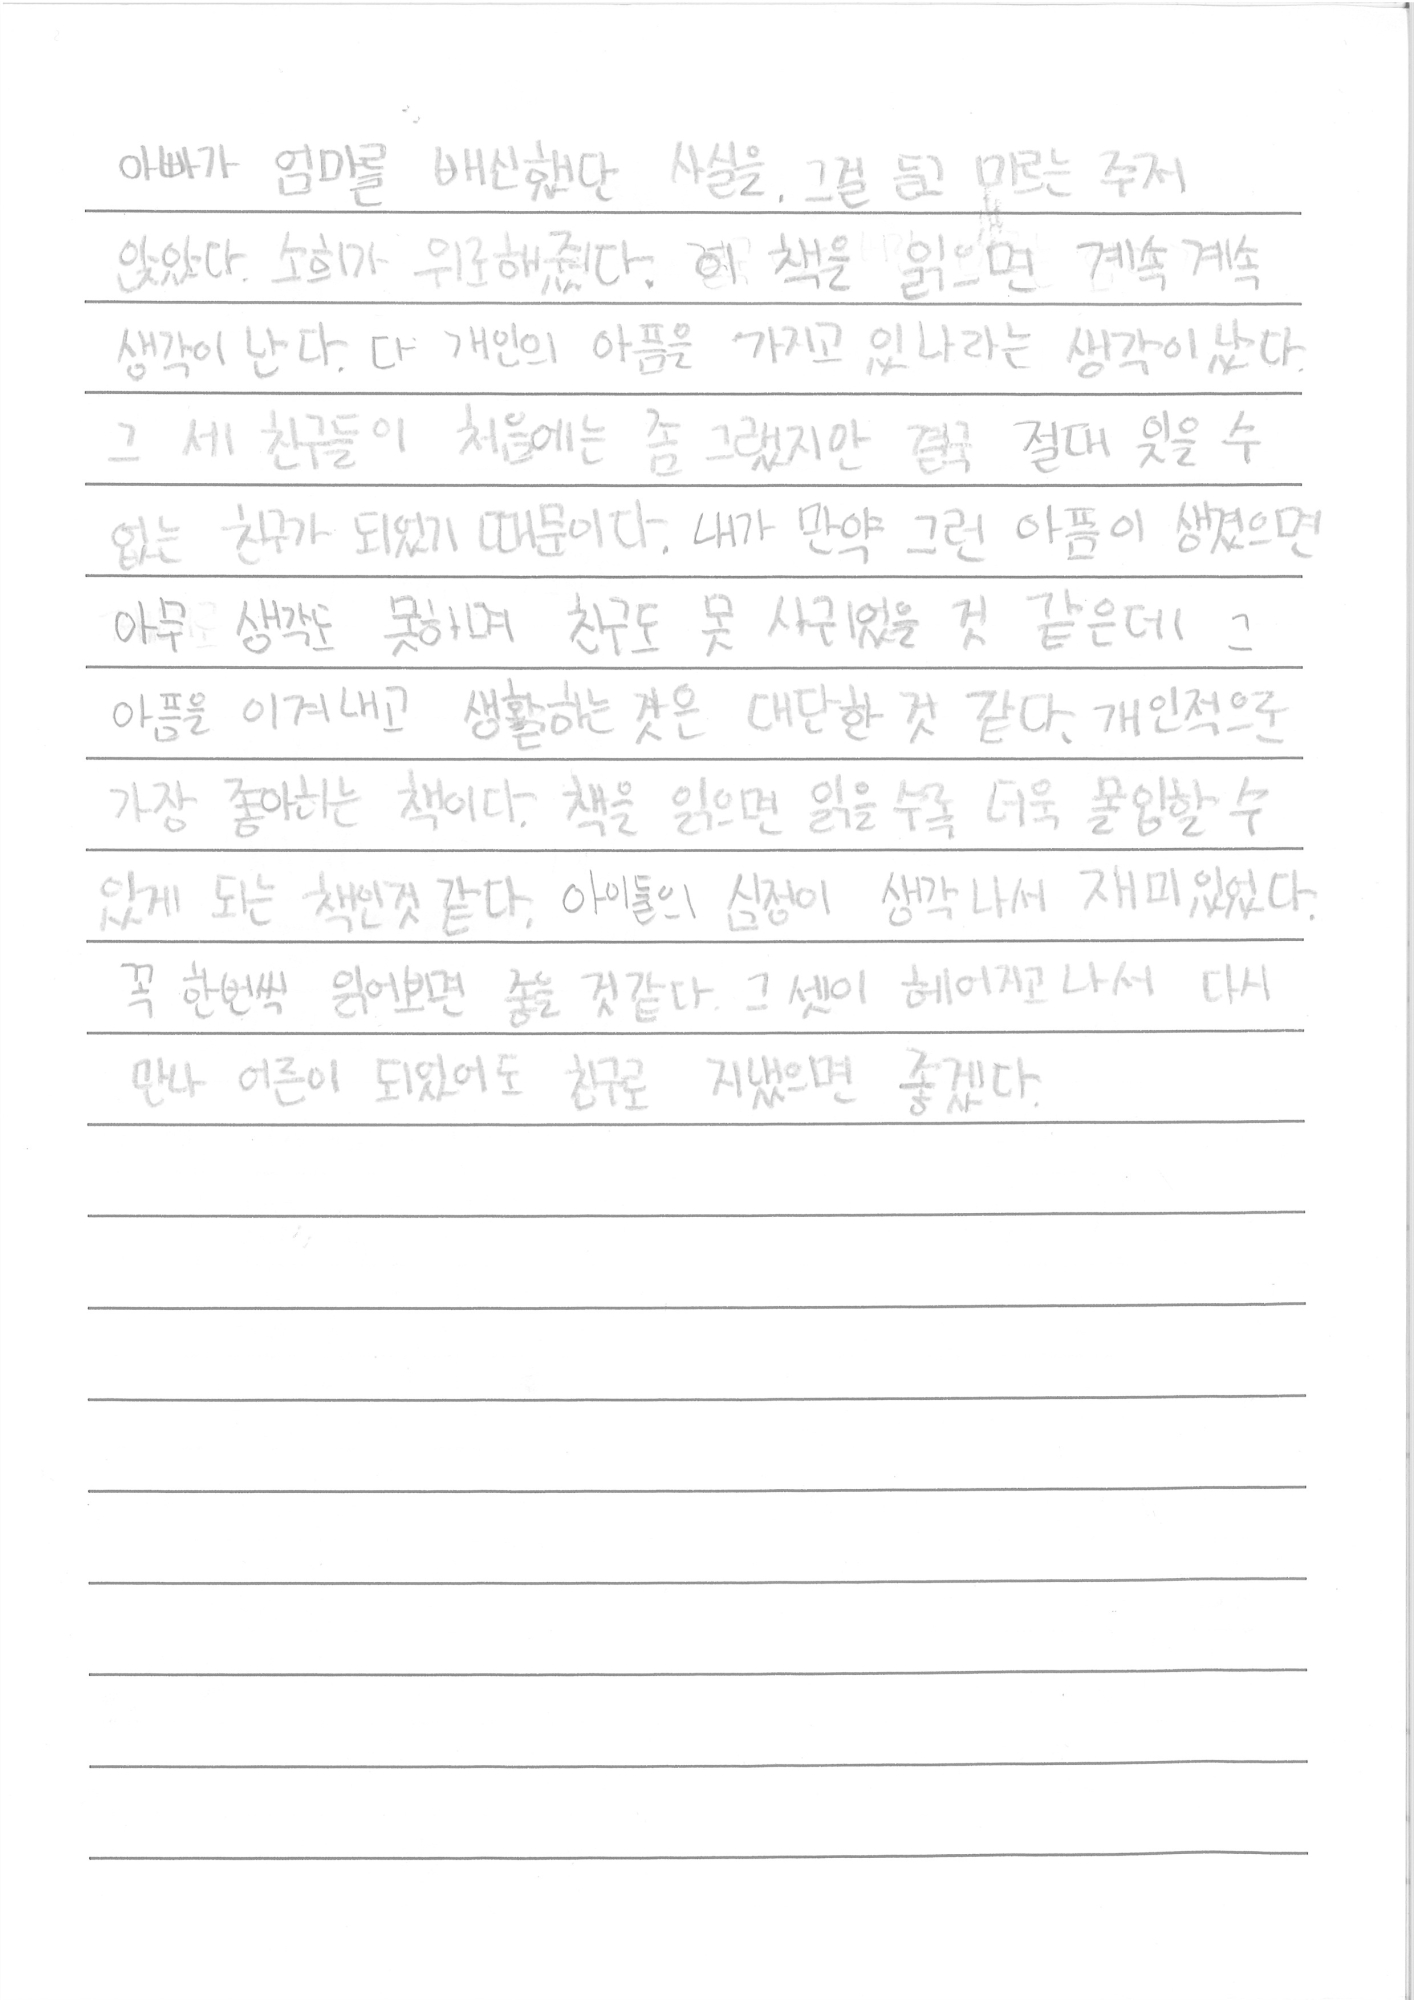 아빠가 엄마를 배신했단 사실을. 그걸 듣고 미르는 주저
앉았다. 소희가 위로해줬다. 이 책을 읽으면 계속 계속
생각이 난다. 다 개인의 아픔을 가지고 있나라는 생각이 났다.
그 세 친구들이 처음에는 좀 그랬지만 결국 절대 잊을 수
없는 친구가 되었기 때문이다. 내가 만약 그런 아픔이 생겼으면
아무 생각도 못하며 친구도 못 사귀었을 것 같은데 그
아픔을 이겨내고 생활하는 것은 대단한 것 같다. 개인적으로
가장 좋아하는 책이다. 책을 읽으면 읽을수록 더욱 몰입할 수
있게 되는 책인것 같다. 아이들의 심정이 생각나서 재미있었다.
꼭 한번씩 읽어보면 좋을 것같다. 그 셋이 헤어지고 나서 다시
만나 어른이 되었어도 친구로 지냈으면 좋겠다.